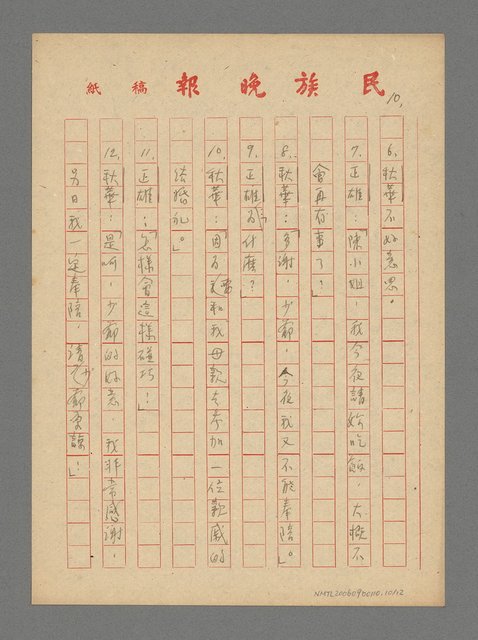 民族晚報 稿紙
10,
6. 秋華不好意思。
7. 正雄:「陳小姐,我今夜請妳吃飯,大概不
會再有事了?」
8. 秋華:「多謝,少爺,今夜我又不能奉陪。」
9. 正雄:「為什麼?」
10. 秋華:「因為我要和我母親去參加一位親戚的
結婚礼。」
11. 正雄:「怎樣會這樣碰巧!」
12. 秋華:「是呵,少爺的好意,我非常感謝,
另日我一定奉陪,請少爺原諒!」
NMTL20060900110.10/12